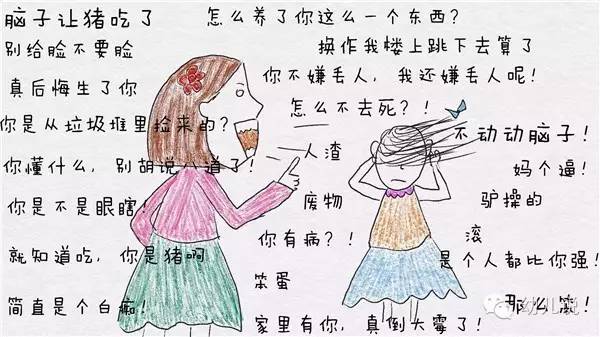 脑子让猪吃了
怎么养了你这么一个东西?
别给脸不要脸
换作我楼上跳下去算了
真后悔生了你
你不嫌丢人，我还嫌丢人呢!
怎么不去死?!
你是从垃圾堆里捡来的?
不动动脑子!
人渣
你懂什么，别胡说八道了!
妈个逼!
废物
驴操的
你是不是眼瞎!
你有病?!
滚
就知道吃，你是猪啊
是个人都比你强!
笨蛋
简直是个白痴!
家里有你，真倒大霉了!
幼儿说